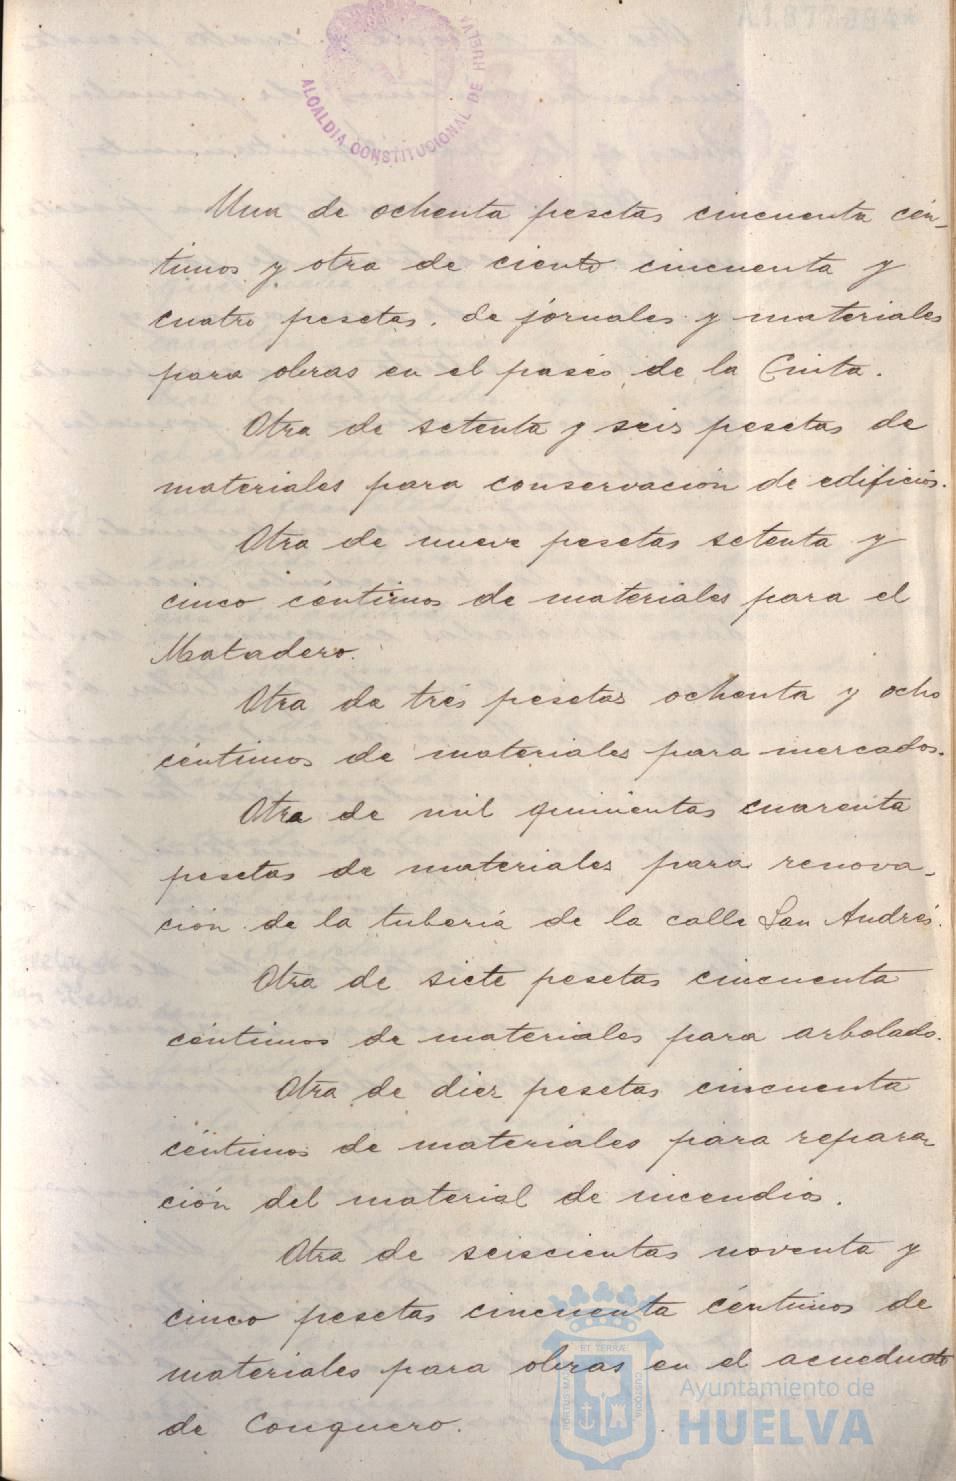 ALCALDIA CONSTITUCIONAL DE HUELVA
Una de ochenta pesetas cincuenta cén-
timos y otra de ciento cincuenta y
cuatro pesetas, de jornales y materiales
para obras en el paseo de la Cinta.
Otra de setenta y seis pesetas de
materiales para conservación de edificios.
Otra de nueve pesetas setenta y
cinco céntimos de materiales para el
Matadero.
Otra de tres pesetas ochenta y ocho
céntimos de materiales para mercados.
Otra de mil quinientas cuarenta
pesetas de materiales para renova-
ción de la tubería de la calle San Andrés.
Otra de siete pesetas cincuenta
céntimos de materiales para arbolado.
Otra de diez pesetas cincuenta
céntimos de materiales para repara-
ción del material de incendios.
Otra de seiscientas noventa y
cinco pesetas cincuenta céntimos de
materiales para obras en el acueducto
de Conquero.
Ayuntamiento de
HUELVA